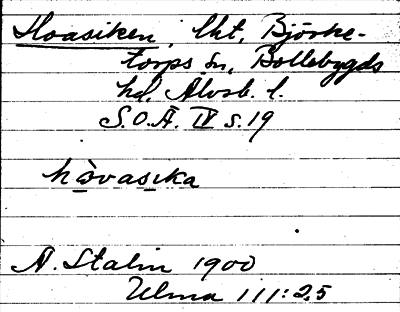 Hoasiken, lht, Björke-
torps sn, Bollebygds
hd, Älvsb. l.
S.O.Ä. IV s. 19
hòvasika
A. Stalin 1900
Ulma 111:25